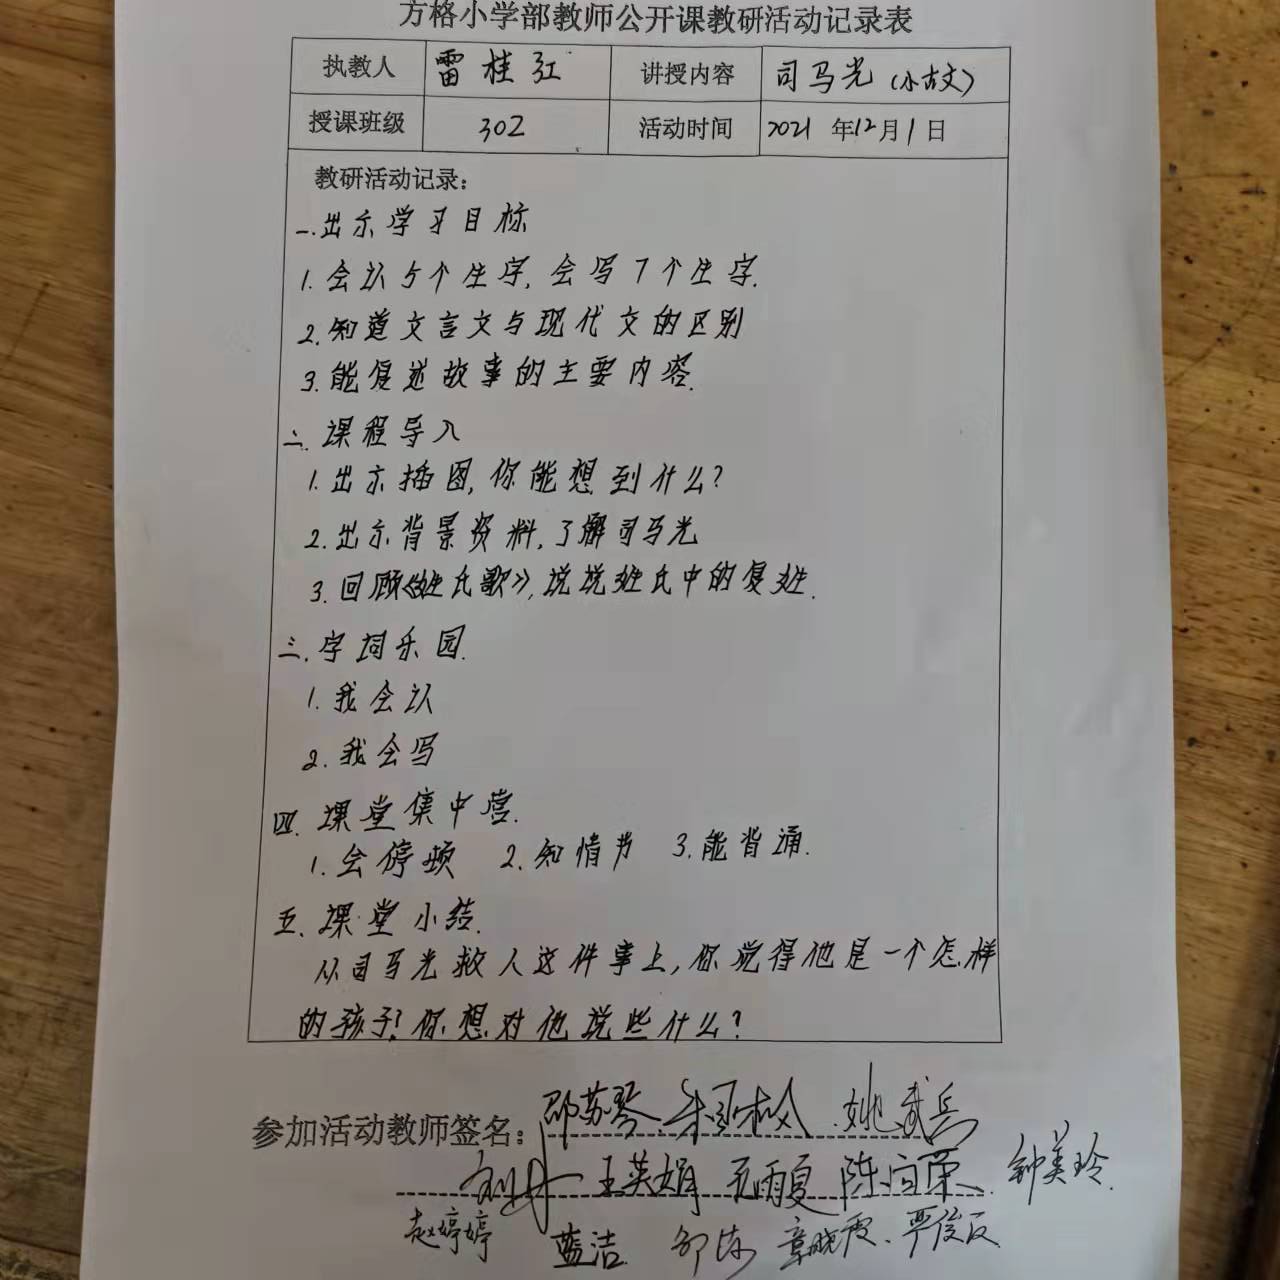 方格小学部教师公开课教研活动记录表
执教人 雷桂红 讲授内容 司马光（小古文）
授课班级 302 活动时间 2021年12月1日
教研活动记录：
一.出示学习目标
1.会认5个生字,会写7个生字.
2.知道文言文与现代文的区别
3.能复述故事的主要内容.
二.课程导入
1.出示插图,你能想到什么?
2.出示背景资料,了解司马光
3.回顾《姓氏歌》,说说姓氏中的复姓.
三.字词乐园.
1.我会认
2.我会写
四.课堂集中营.
1.会停顿 2.知情节 3.能背诵.
五.课堂小结.
从司马光救人这件事上,你觉得他是一个怎样
的孩子?你想对他说些什么?
参加活动教师签名： 邵苏琴 姚武兵
王英娟 孔雨夏 钟美玲
赵婷婷 蓝洁 章晓霞